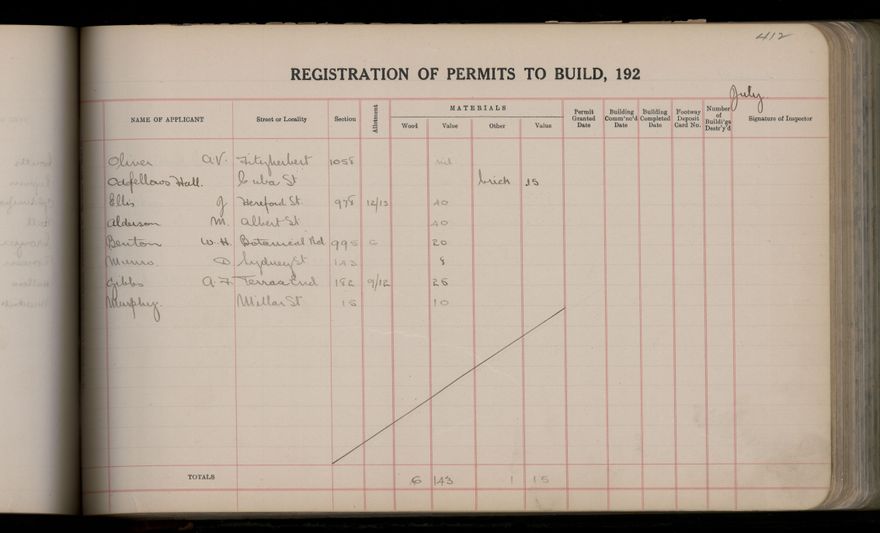 412
REGISTRATION OF PERMITS TO BUILD, 192
July
NAME OF APPLICANT Street or Locality Section Allotment MATERIALS Wood Value Other Value Permit Granted Date Building Comm'nc'd Date Building Completed Date Footway Deposit Card No. Number of Buildi'gs Destr'y'd Signature of Inspector
Oliver A.V. Fitzherbert 1058 nil
Oddfellows Hall. Cuba St brick 15
Ellis J Hereford St. 978 12/13 40
Alderson M. Albert St. 40
Benton W.H. Botanical Rd 995 6 20
Munro D Sydney St 143 8
Gibbs A.F. Terrace End 182 9/12 25
Murphy. Millar St 15 10
TOTALS 6 143 1 15